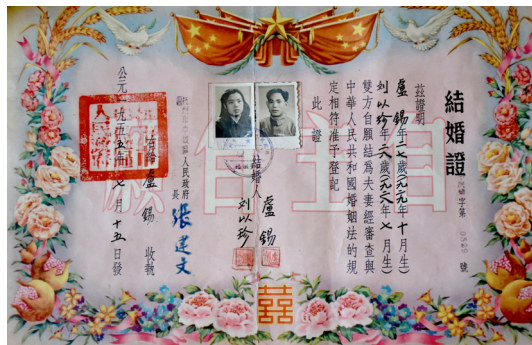 結婚證 字第 號
茲證明
盧錫年二七歲(一九二九年十月生)
刘以珍年二八歲(一九二六年七月生)
雙方自願結為夫妻經審查與
中華人民共和國婚姻法的規
定相符准予登記
此證
結婚人 盧錫
刘以珍
人民政府
長 張建文
右給盧錫 收執
公元一九五五年七月十五日發
囍